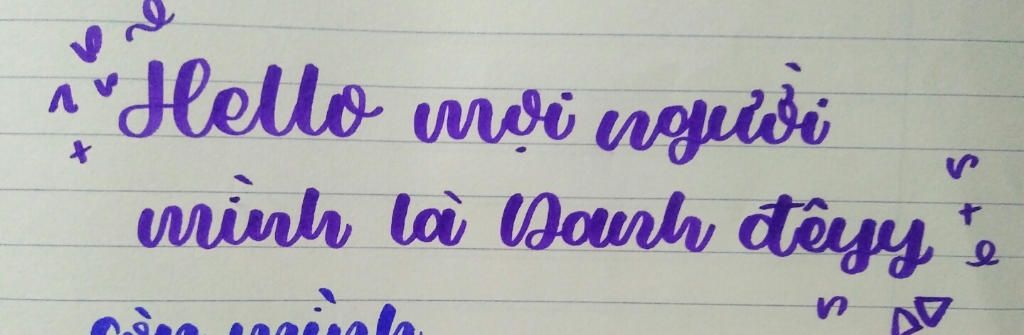 Hello mọi người
mình là Danh đêyy
còn mình